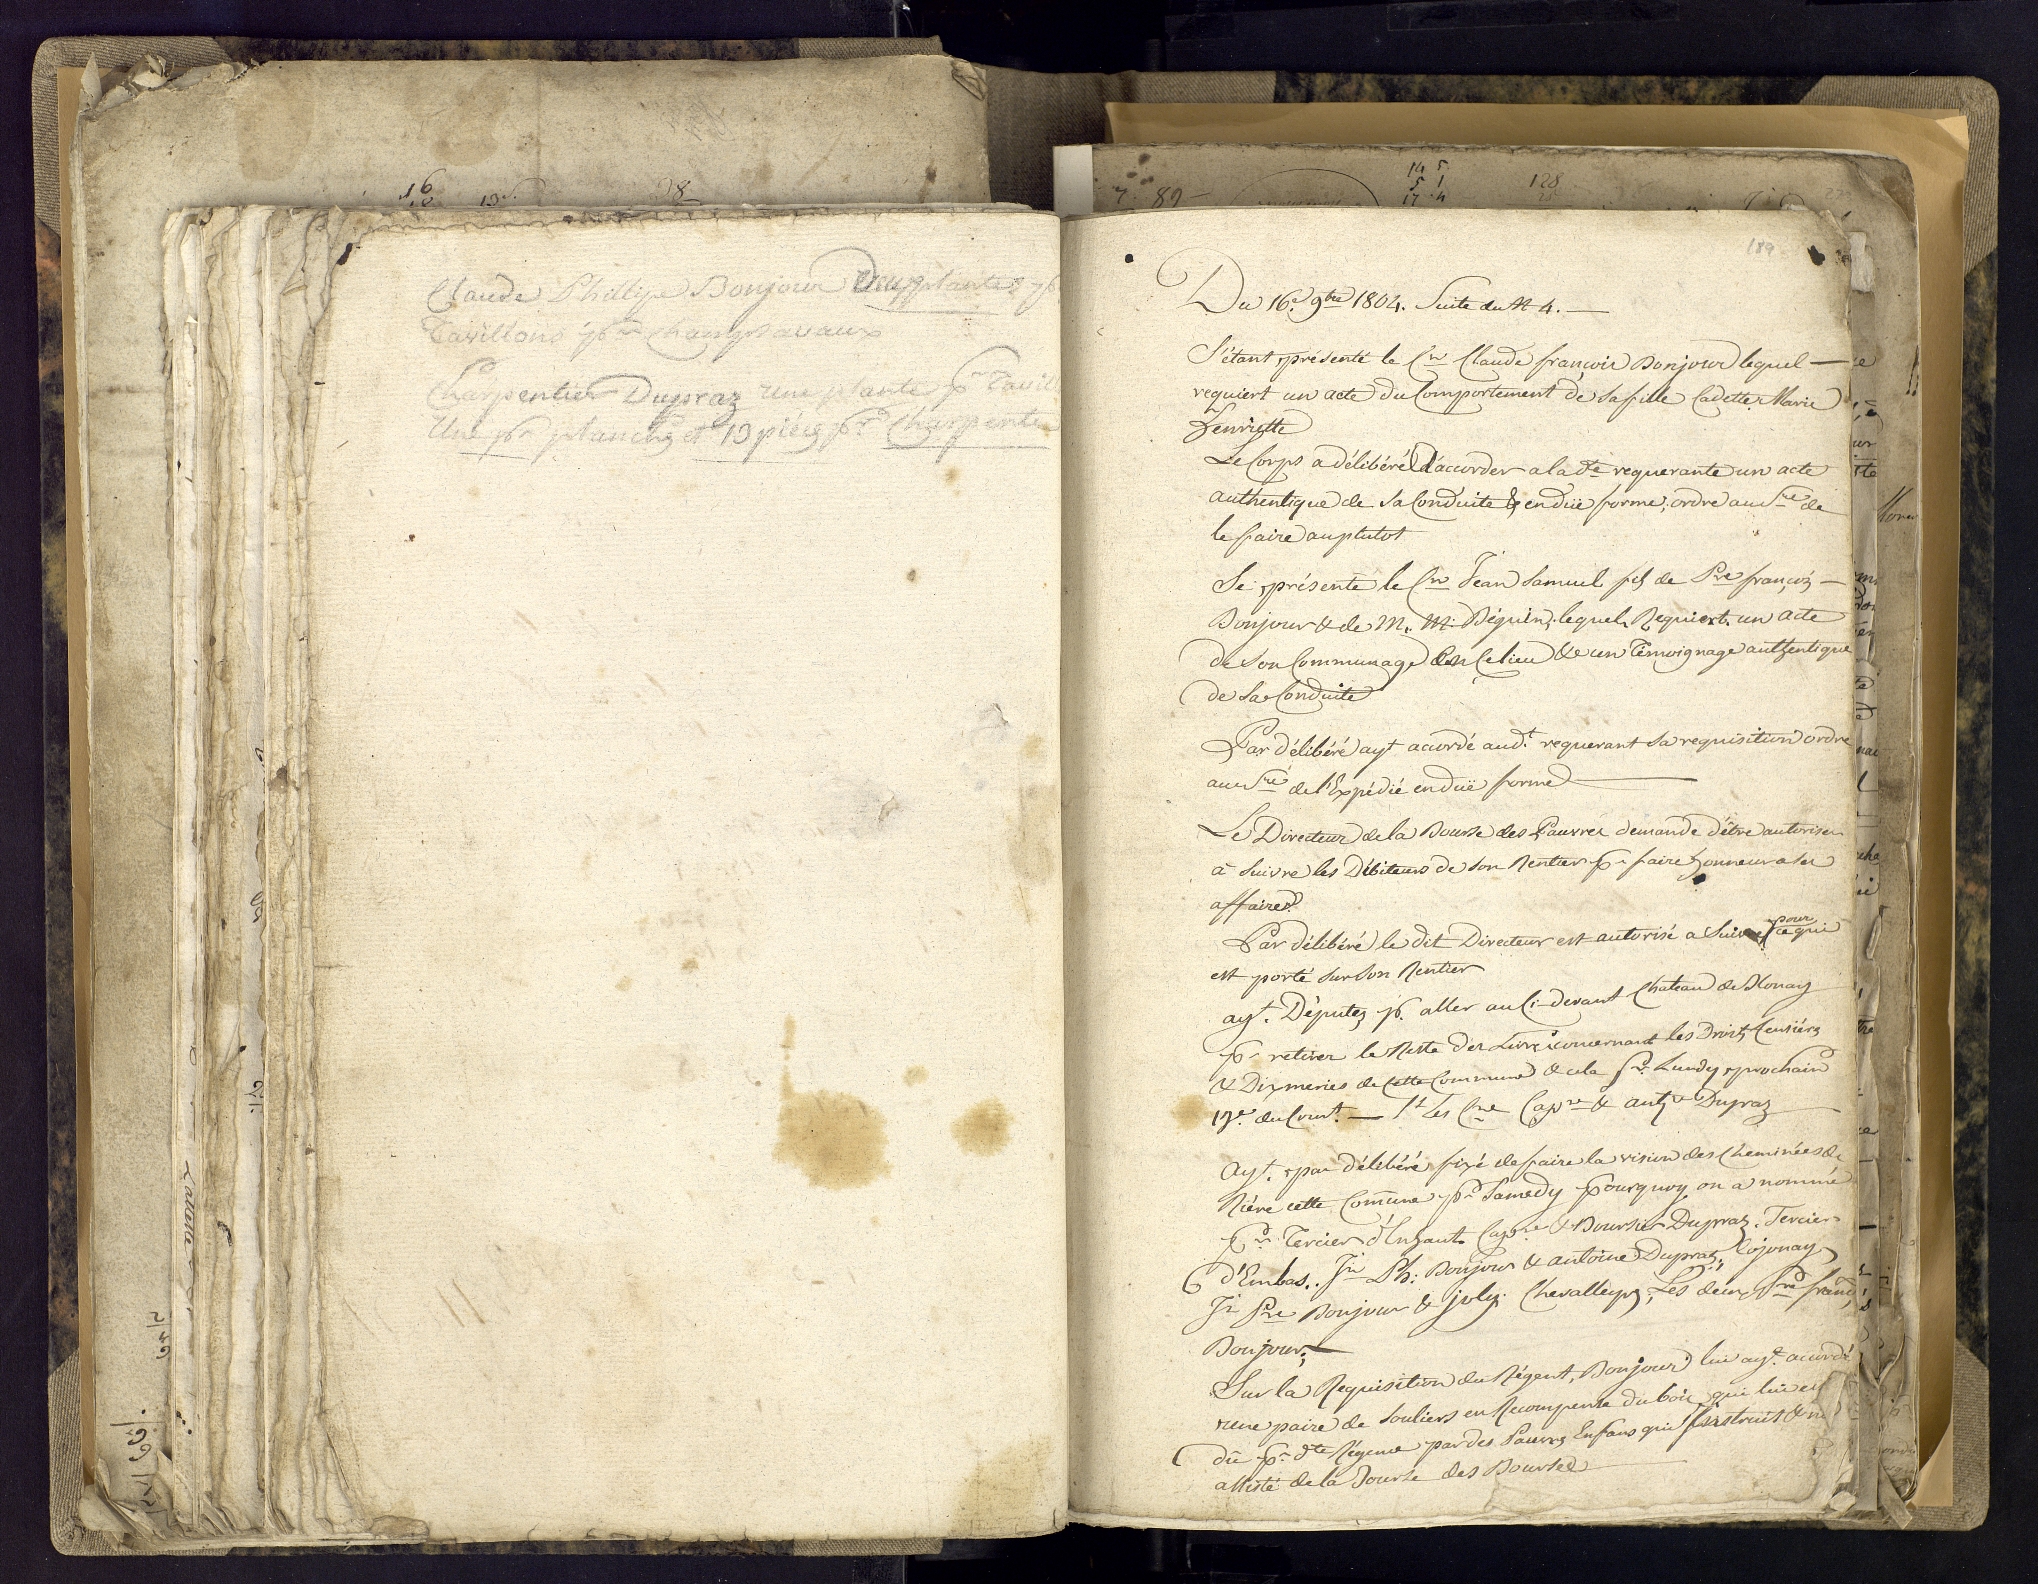 Claude Phillipe Bonjour Deux plantes pr
Tavillons pr Champsavaux
Charpentier Dupraz une plante pr Tavill
Une pr planches et 13 piéces pr Charpente
189
Du 16.e 9bre 1804. Suite du N 4. —
S'étant présenté le Cn Claude françois Bonjour lequel —
requiert un acte du Comportement de Sa fille Cadette Marie
henriette
Le Corps a délibéré d'accorder a la dte requerante un acte
authentique de Sa Conduite & en düe forme; ordre au Sre de
le faire au plutot
Se présente le Cn Jean Samuel fils de Pre françois —
Bonjour & de M. M. Béguin, lequel Requiert un acte
de Son Communage en Ce lieu & un Témoignage authentique
de Sa Conduite
Par délibéré ayt accordé aud.t requerant Sa requisition ordre
au Sre de l'Expédié en düe forme —
Le Directeur de la Bourse des Pauvres demande d'être autoriser
à Suivre les Débiteurs de Son Rentier pr faire honneur a Ses
affaires
Par délibéré le dit Directeur est autorisé a Suivre pour ce qui
est porté Sur Son Rentier
ayt. Députez p. aller au Ci-devant Chateau de Blonay
pr retirer le Reste des Livres concernant les Droits Censiéres
& Dixmeries de Cette Commune & cela pr Lundy prochain
19e du Court. — St les Cne Capne & antne Dupraz
Ayt. par délibéré fixé de faire la vision des Cheminées de
Riére cette Comune pr Samedy pourquoy on a nommé
pr Tercier d'Enhaut Capne & Boursier Dupraz. Tercier
d'Embas. Jn Ph: Bonjour & antoine Dupraz; Cojonay
Jn Pre Bonjour & joly Chevalleyre; Les deux Pre franç
Bonjour;
Sur la Requisition du Régent, Bonjour lui ayt. accordé
une paire de Souliers en Recompense du bois qui lui est
dû pr dte Régence par des Pauvres Enfans qui Instruit &
assisté de la Bourse des Bourses